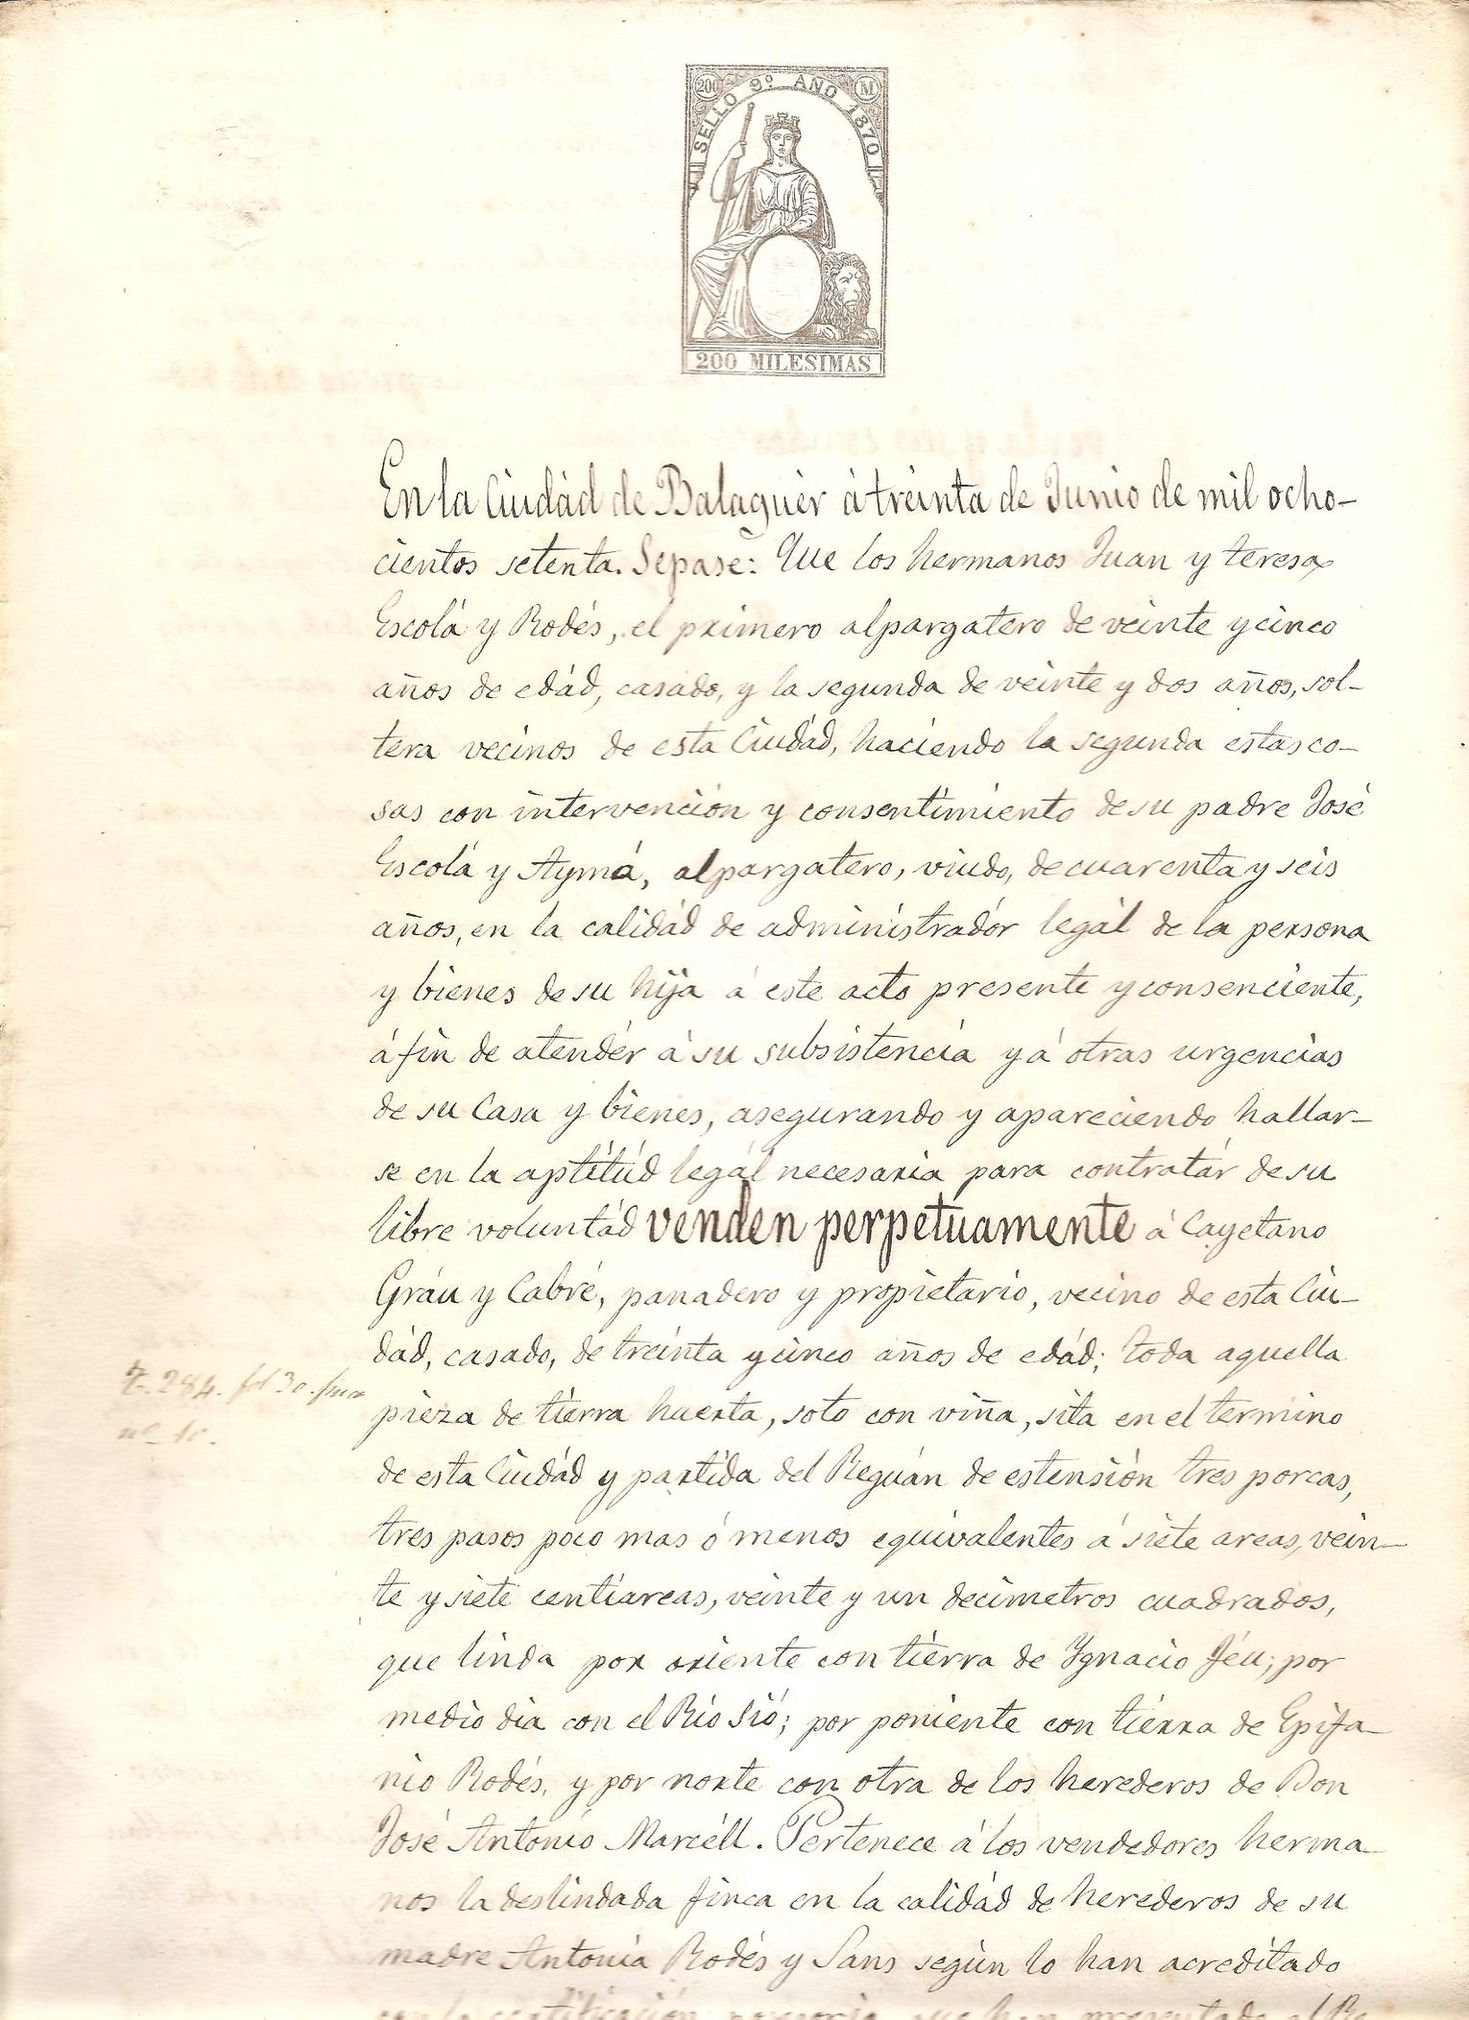 200 SELLO 9º AÑO 1870 M
200 MILESIMAS
En la Ciudád de Balaguér á treinta de Junio de mil ocho-
cientos setenta. Sepase: Que los hermanos Juan y teresa
Escolá y Rodés, el primero alpargatero de veinte y cinco
años de edád, casado, y la segunda de veinte y dos años, sol-
tera vecinos de esta Ciudád, haciendo la segunda estas co-
sas con intervención y consentimiento de su padre José
Escolá y Aymá, alpargatero, viudo, de cuarenta y seis
años, en la calidád de administradór legál de la persona
y bienes de su hija á este acto presente y consenciente,
á fin de atendér á su subsistencia y á otras urgencias
de su Casa y bienes, asegurando y apareciendo hallar-
se en la aptitúd legál necesaria para contratár de su
libre voluntád venden perpetuamente á Cayetano
Gráu y Cabré, panadero y propietario, vecino de esta Ciu-
dád, casado, de treinta y cinco años de edád; toda aquella
t. 284. fol 30. finca
nº 1c.
pieza de tierra huerta, soto con viña, sita en el termino
de esta Ciudád y partida del Reguán de estensión tres porcas,
tres pasos poco mas ó menos equivalentes á siete areas, vein-
te y siete centiareas, veinte y un decimetros cuadrados,
que linda por oriente con tierra de Ygnacio Féu; por
medio dia con el Rio Sió; por poniente con tierra de Epifa-
nio Rodés, y por norte con otra de los herederos de Don
José Antonio Marcéll. Pertenece á los vendedores herma-
nos la deslindada finca en la calidád de herederos de su
madre Antonia Rodés y Sans según lo han acreditado
con la certificación posesoria que han presentado el Re